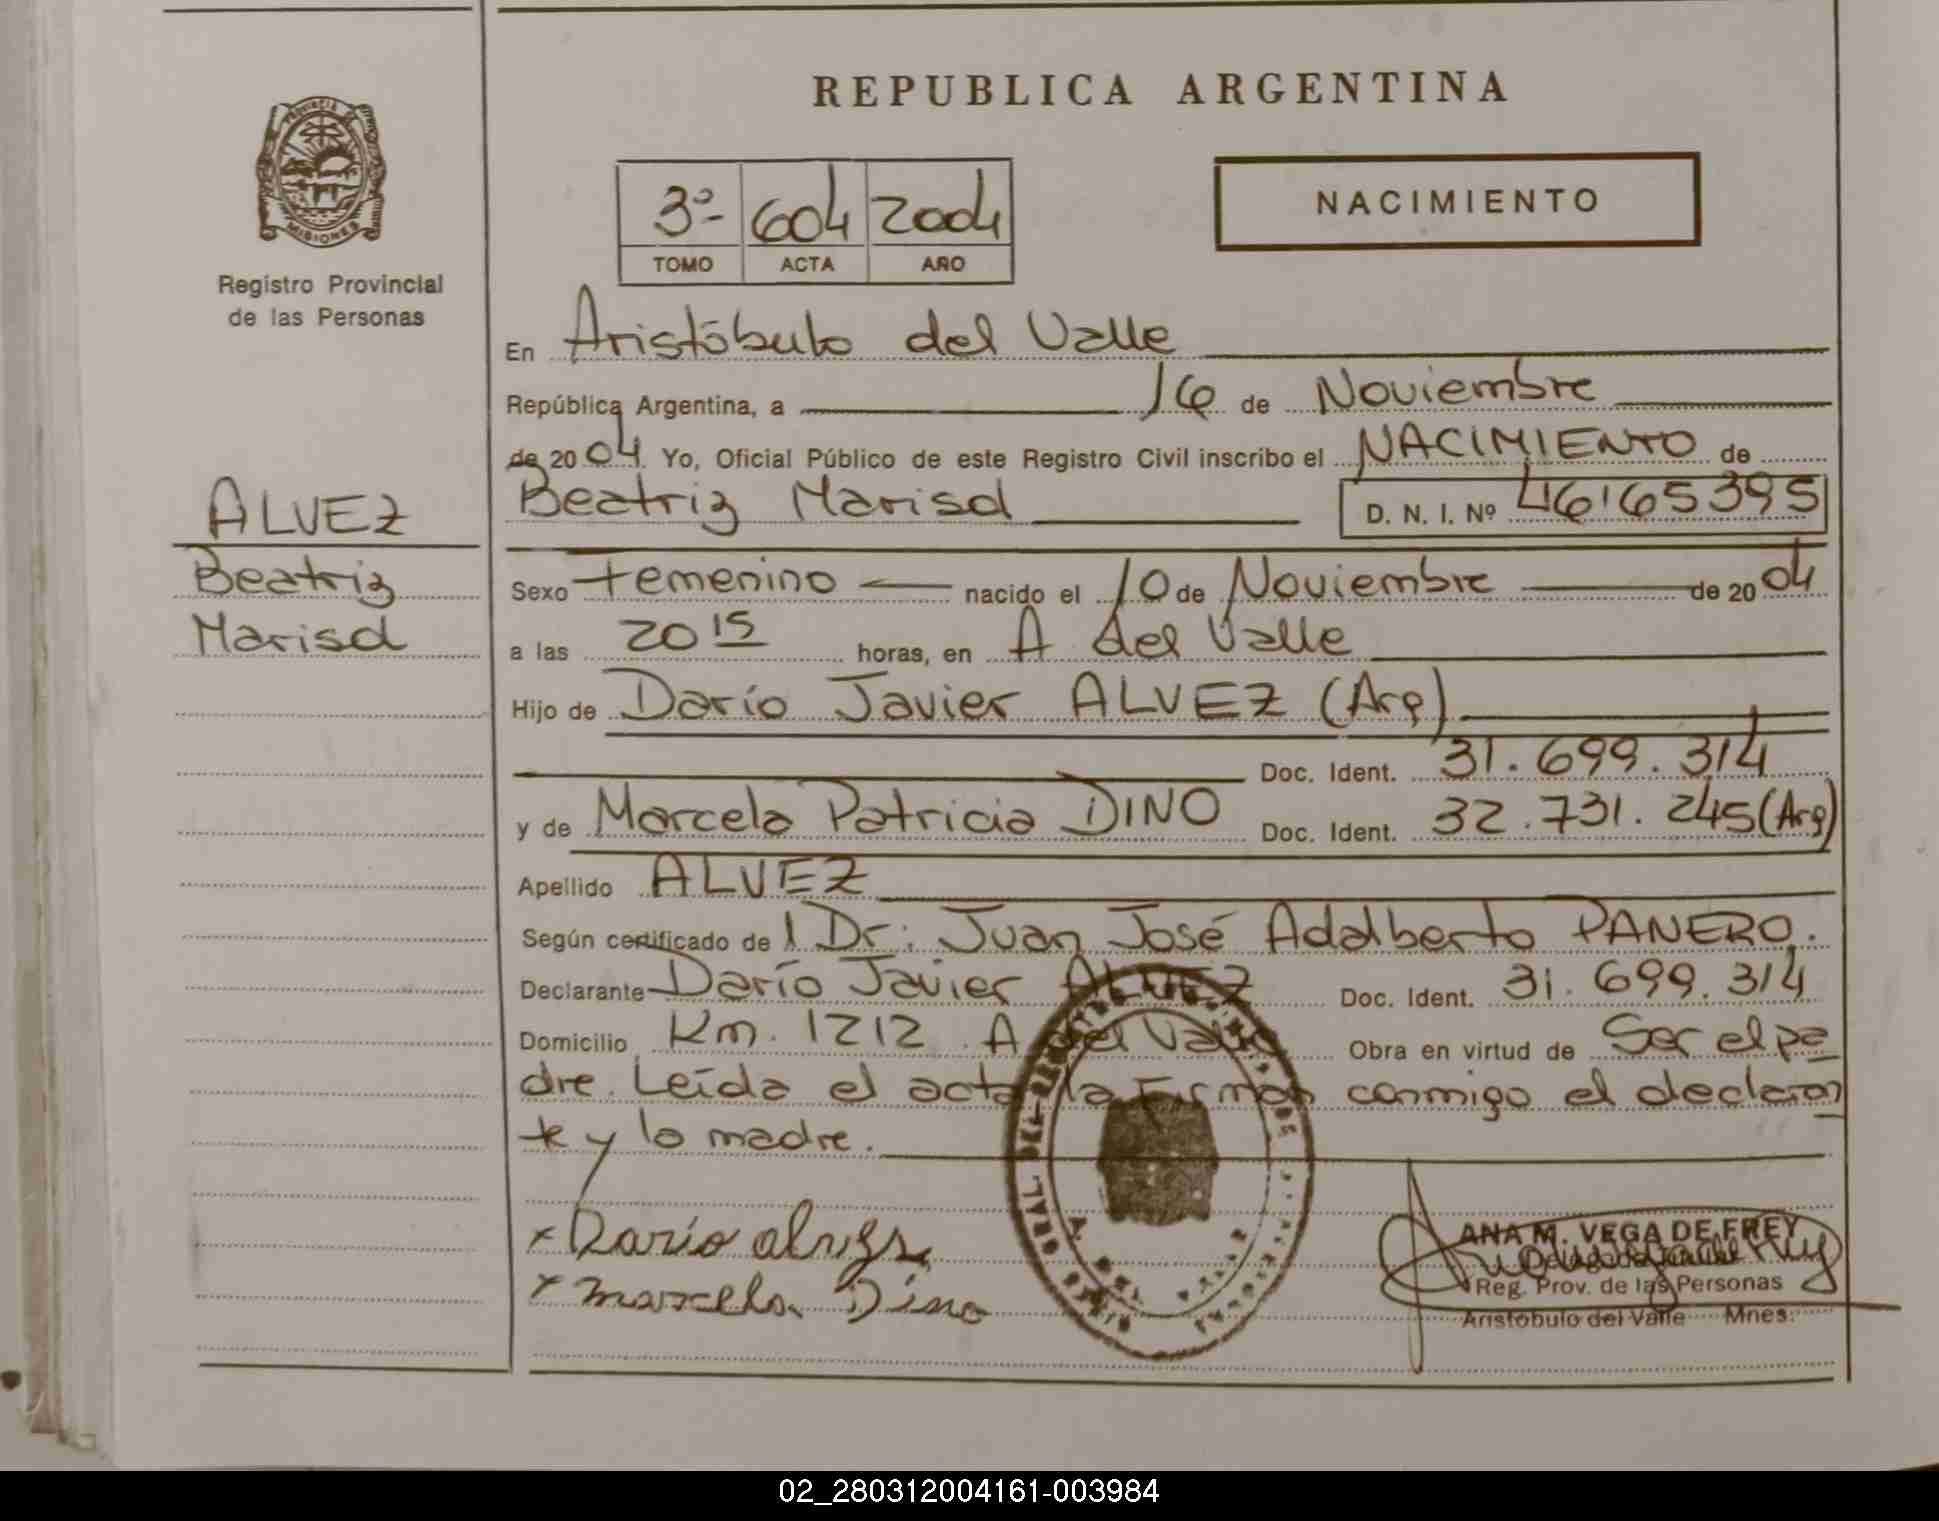 REPUBLICA ARGENTINA
PROVINCIA
MISIONES
Registro Provincial
de las Personas
3º 604 2004
TOMO ACTA AÑO
NACIMIENTO
En Aristóbulo del Valle
República Argentina, a 16 de Noviembre
de 2004 Yo, Oficial Público de este Registro Civil inscribo el NACIMIENTO de
Beatriz Marisol D. N. I. Nº 46165395
ALVEZ
Beatriz
Marisol
Sexo Femenino nacido el 10 de Noviembre de 2004
a las 20 15 horas, en A del Valle
Hijo de Darío Javier ALVEZ (Arg)
Doc. Ident. 31.699.314
y de Marcela Patricia DINO Doc. Ident. 32.731.245 (Arg)
Apellido ALVEZ
Según certificado de l Dr. Juan José Adalberto PANERO.
Declarante Darío Javier ALVEZ Doc. Ident. 31.699.314
Domicilio Km. 1212 A del Valle Obra en virtud de Ser el pa
dre. Leída el acta la Firman conmigo el declaran
te y la madre.
x Darío
x Marcela Dino
ANA M. VEGA DE FREY
Delegada Titular
Reg. Prov. de las Personas
Aristóbulo del Valle Mnes.
02_280312004161-003984